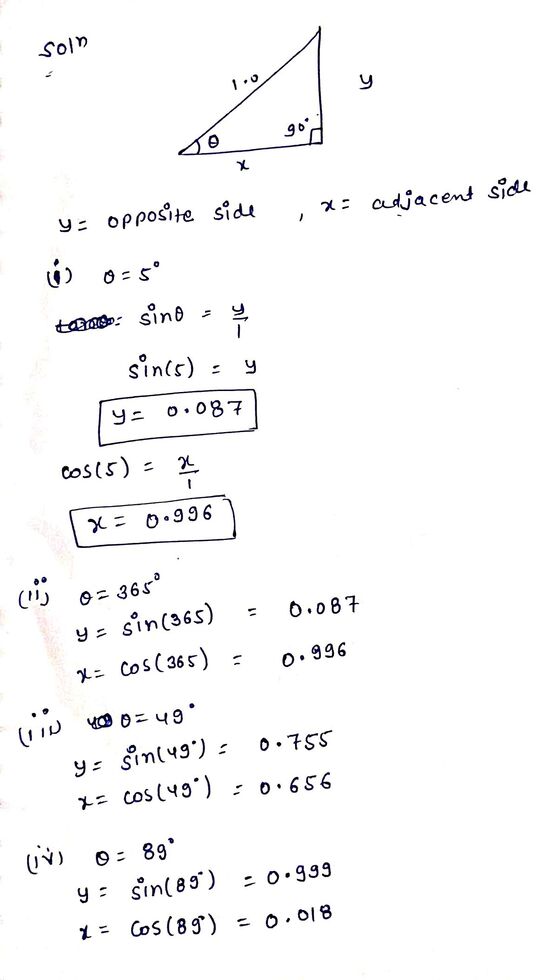 Soln
1.0
y
θ
90°
x
y = opposite side , x = adjacent side
(i) θ = 5°
sinθ = y/1
sin(5) = y
y = 0.087
cos(5) = x/1
x = 0.996
(ii) θ = 365°
y = sin(365) = 0.087
x = cos(365) = 0.996
(iii) θ = 49°
y = sin(49°) = 0.755
x = cos(49°) = 0.656
(iv) θ = 89°
y = sin(89°) = 0.999
x = cos(89°) = 0.018